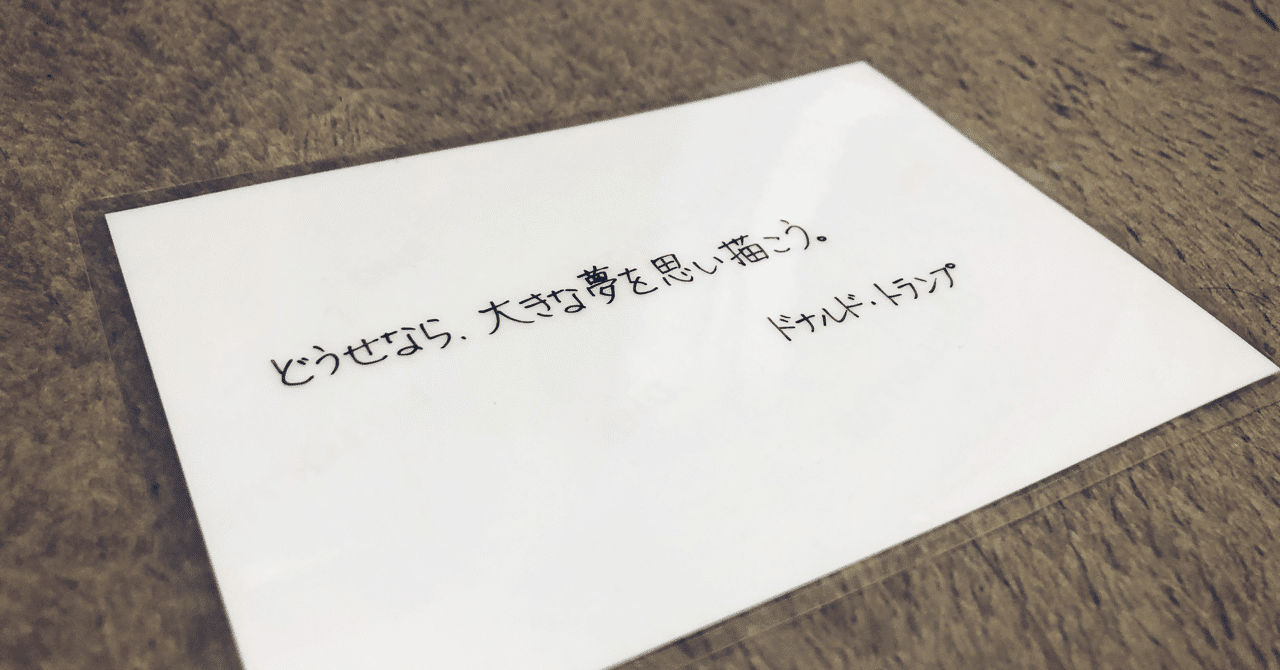 どうせなら、大きな夢を思い描こう。
ドナルド・トランプ